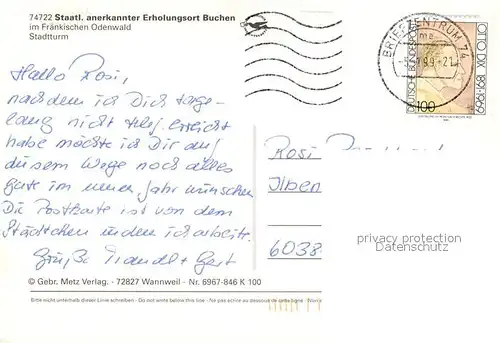 74722 Staatl. anerkannter Erholungsort Buchen
im Fränkischen Odenwald
Stadtturm
Hallo Rosi,
nachdem ich Dich tage-
lang nicht tel. erreicht
habe möchte ich Dir auf
diesem Wege noch alles
gute im neuen Jahr wünschen
Die Postkarte ist von dem
Städtchen in dem ich arbeite.
Grüße
© Gebr. Metz Verlag. - 72827 Wannweil - Nr. 6967-846 K 100
Bitte nicht unterhalb dieser Linie schreiben - Do not write below this line - Ne pas écrire au dessous de cette ligne
BRIEFZENTRUM 74
OTTO DIX 1891-1969
DEUTSCHE BUNDESPOST
100
Rosi
Ilben
6038
privacy protection
Datenschutz